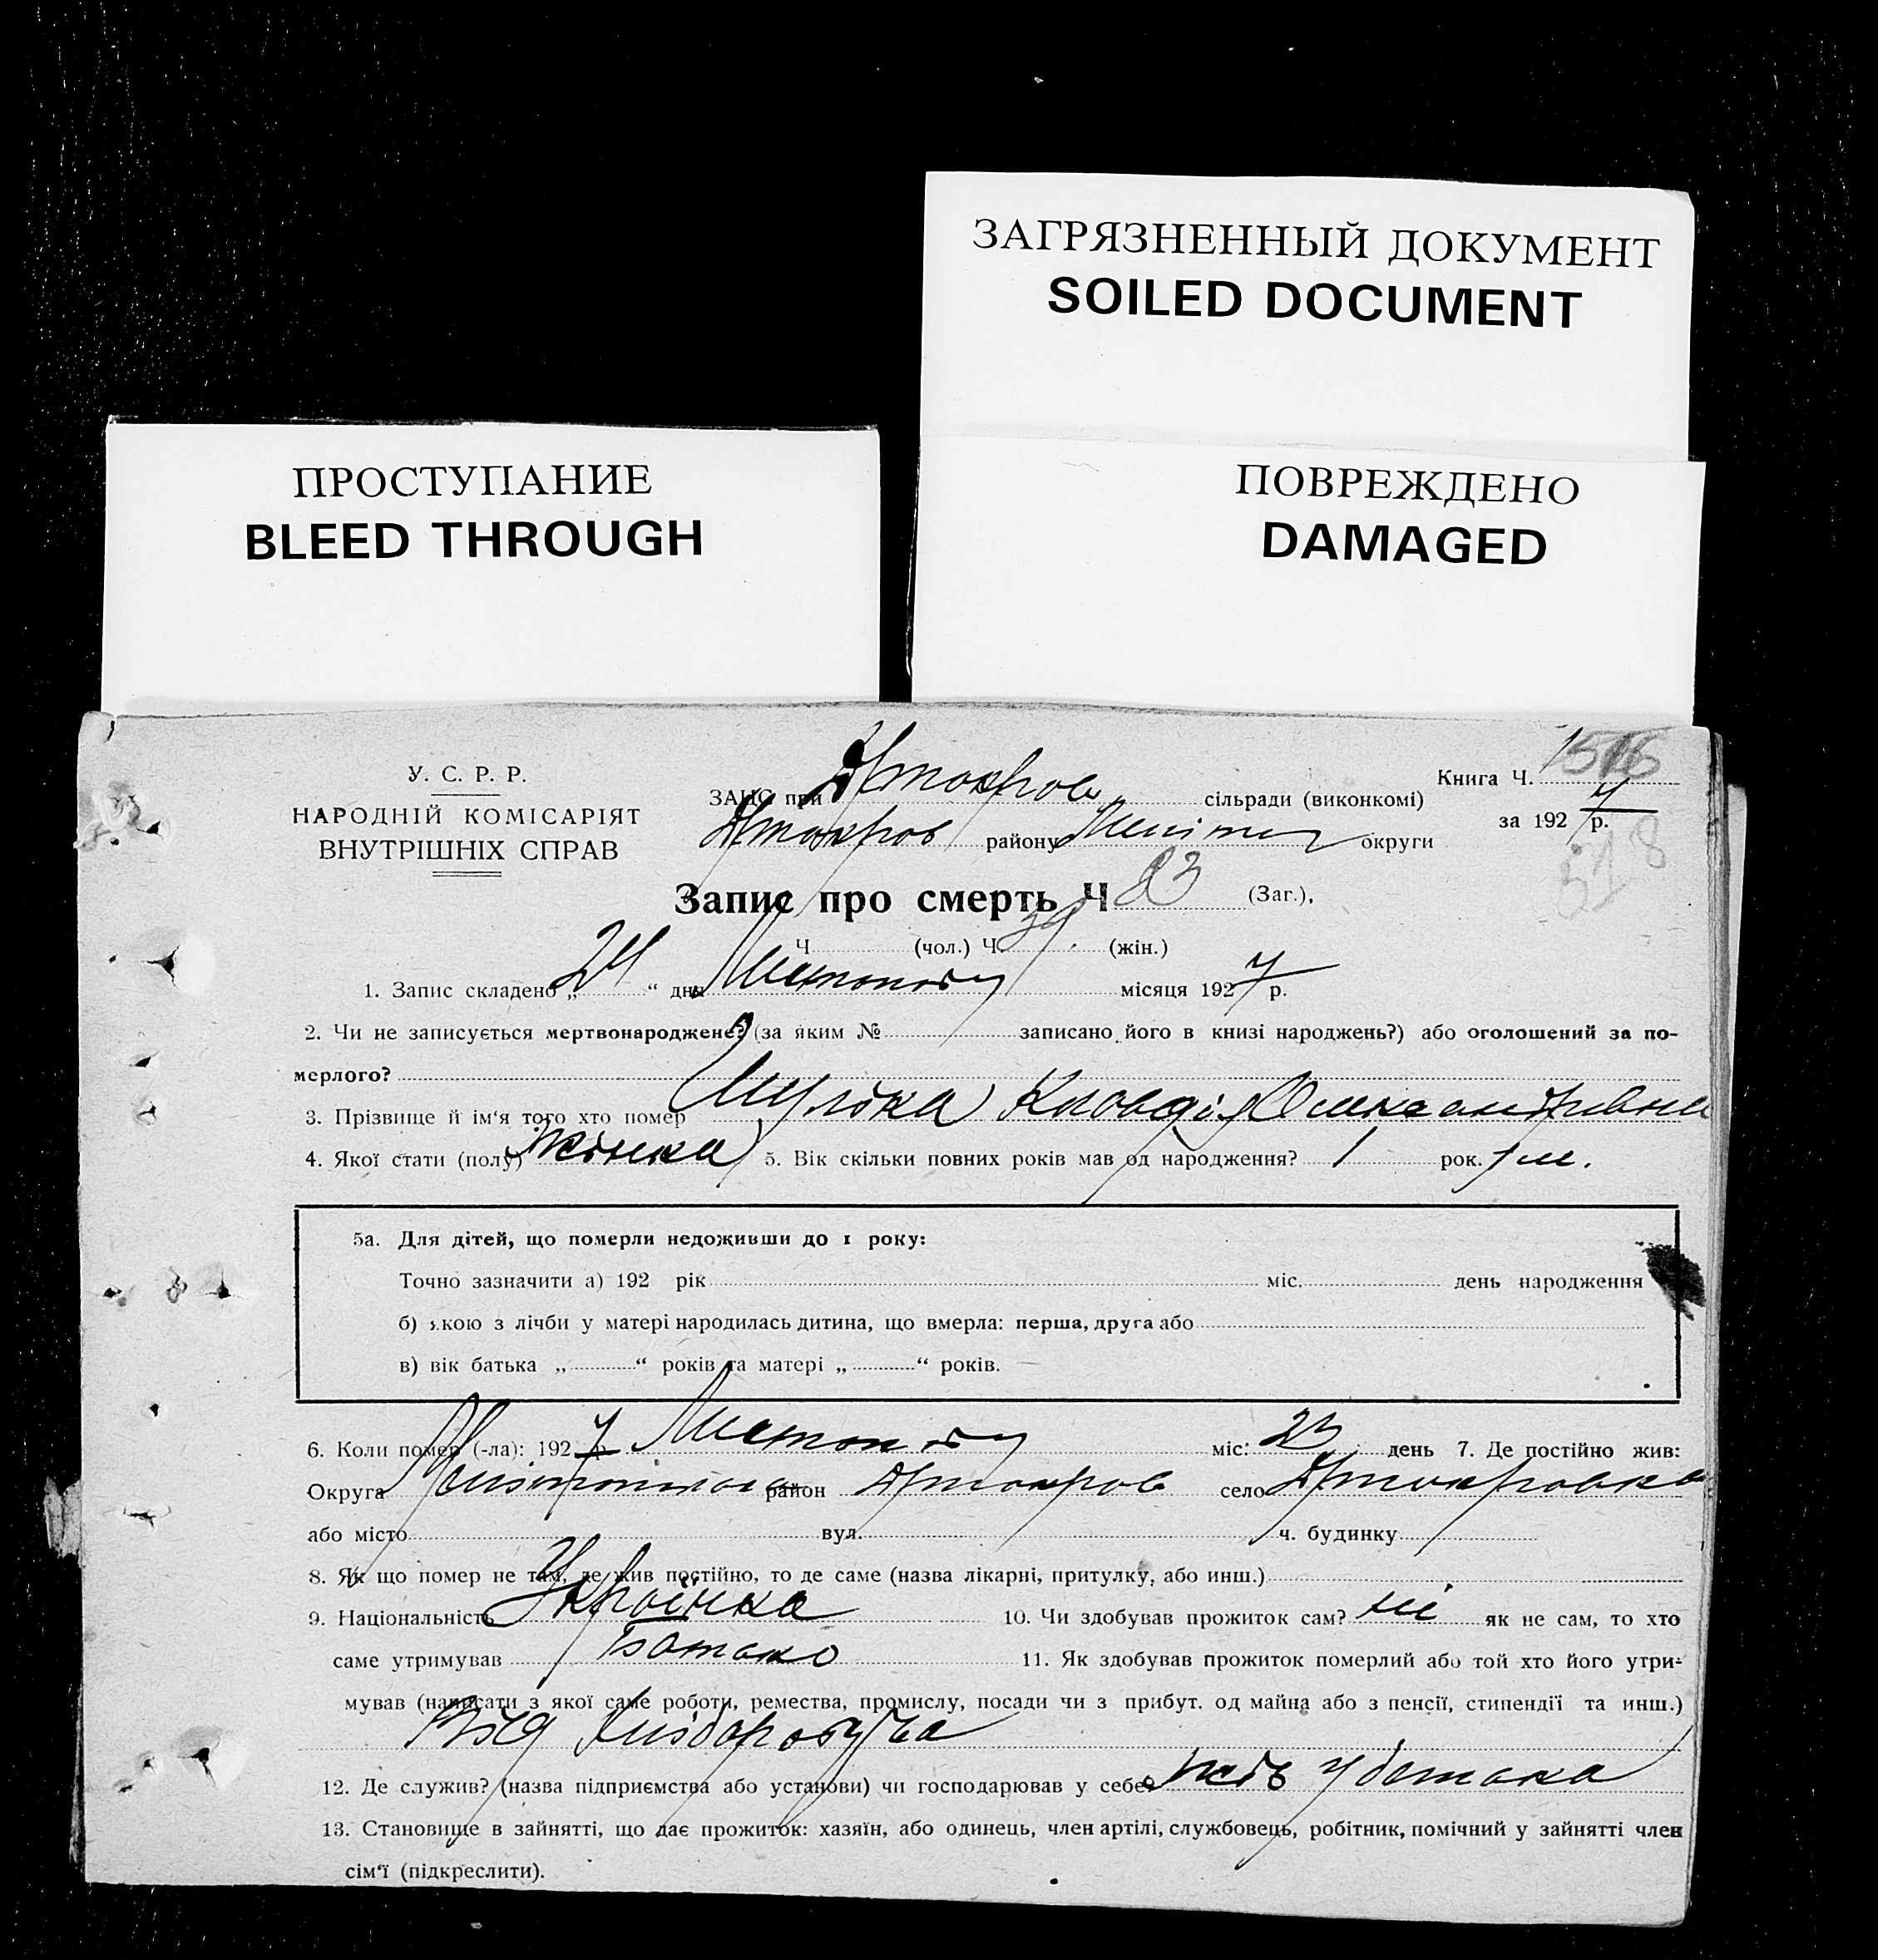 ЗАГРЯЗНЕННЫЙ ДОКУМЕНТ
SOILED DOCUMENT
ПРОСТУПАНИЕ
BLEED THROUGH
ПОВРЕЖДЕНО
DAMAGED
У. С. Р. Р.
НАРОДНІЙ КОМІСАРІЯТ
ВНУТРІШНІХ СПРАВ
ЗАЦС при сільради (виконкомі)
району округи
Книга Ч.
за 1927 р.
518
Запис про смерть Ч 83 (Заг.),
Ч (чол.) Ч 39. (жін.)
1. Запис складено „24“ дня Листопаду місяця 1927 р.
2. Чи не записується мертвонароджене? (за яким № записано його в книзі народжень?) або оголошений за по-
мерлого?
3. Прізвище й ім‘я того хто помер Клавдія Олександрівна
4. Якої стати (полу) жінка 5. Вік скільки повних років мав од народження? 1 рок. 1 м.
5а. Для дітей, що померли недоживши до 1 року:
Точно зазначити а) 192 рік міс. день народження
б) якою з лічби у матері народилась дитина, що вмерла: перша, друга або
в) вік батька „ “ років та матері „ “ років.
6. Коли помер (-ла): 1927 р. Листопаду міс. 23 день 7. Де постійно жив:
Округа район село
або місто вул. ч. будинку
8. Як що помер не там, де жив постійно, то де саме (назва лікарні, притулку, або инш.)
9. Національність Українка 10. Чи здобував прожиток сам? ні як не сам, то хто
саме утримував Батько 11. Як здобував прожиток померлий або той хто його утри-
мував (написати з якої саме роботи, ремества, промислу, посади чи з прибут. од майна або з пенсії, стипендії та инш.)
Від хліборобства
12. Де служив? (назва підприємства або установи) чи господарював у себе? жив у батька
13. Становище в зайнятті, що дає прожиток: хазяїн, або одинець, член артілі, службовець, робітник, помічний у зайнятті член
сім‘ї (підкреслити).